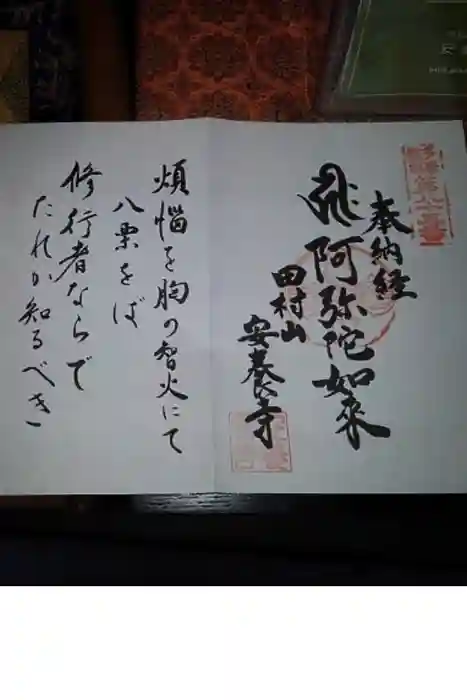 奉納経
阿弥陀如来
田村山
安養寺
煩悩を胸の智火にて
八栗をば
修行者ならで
たれか知るべき